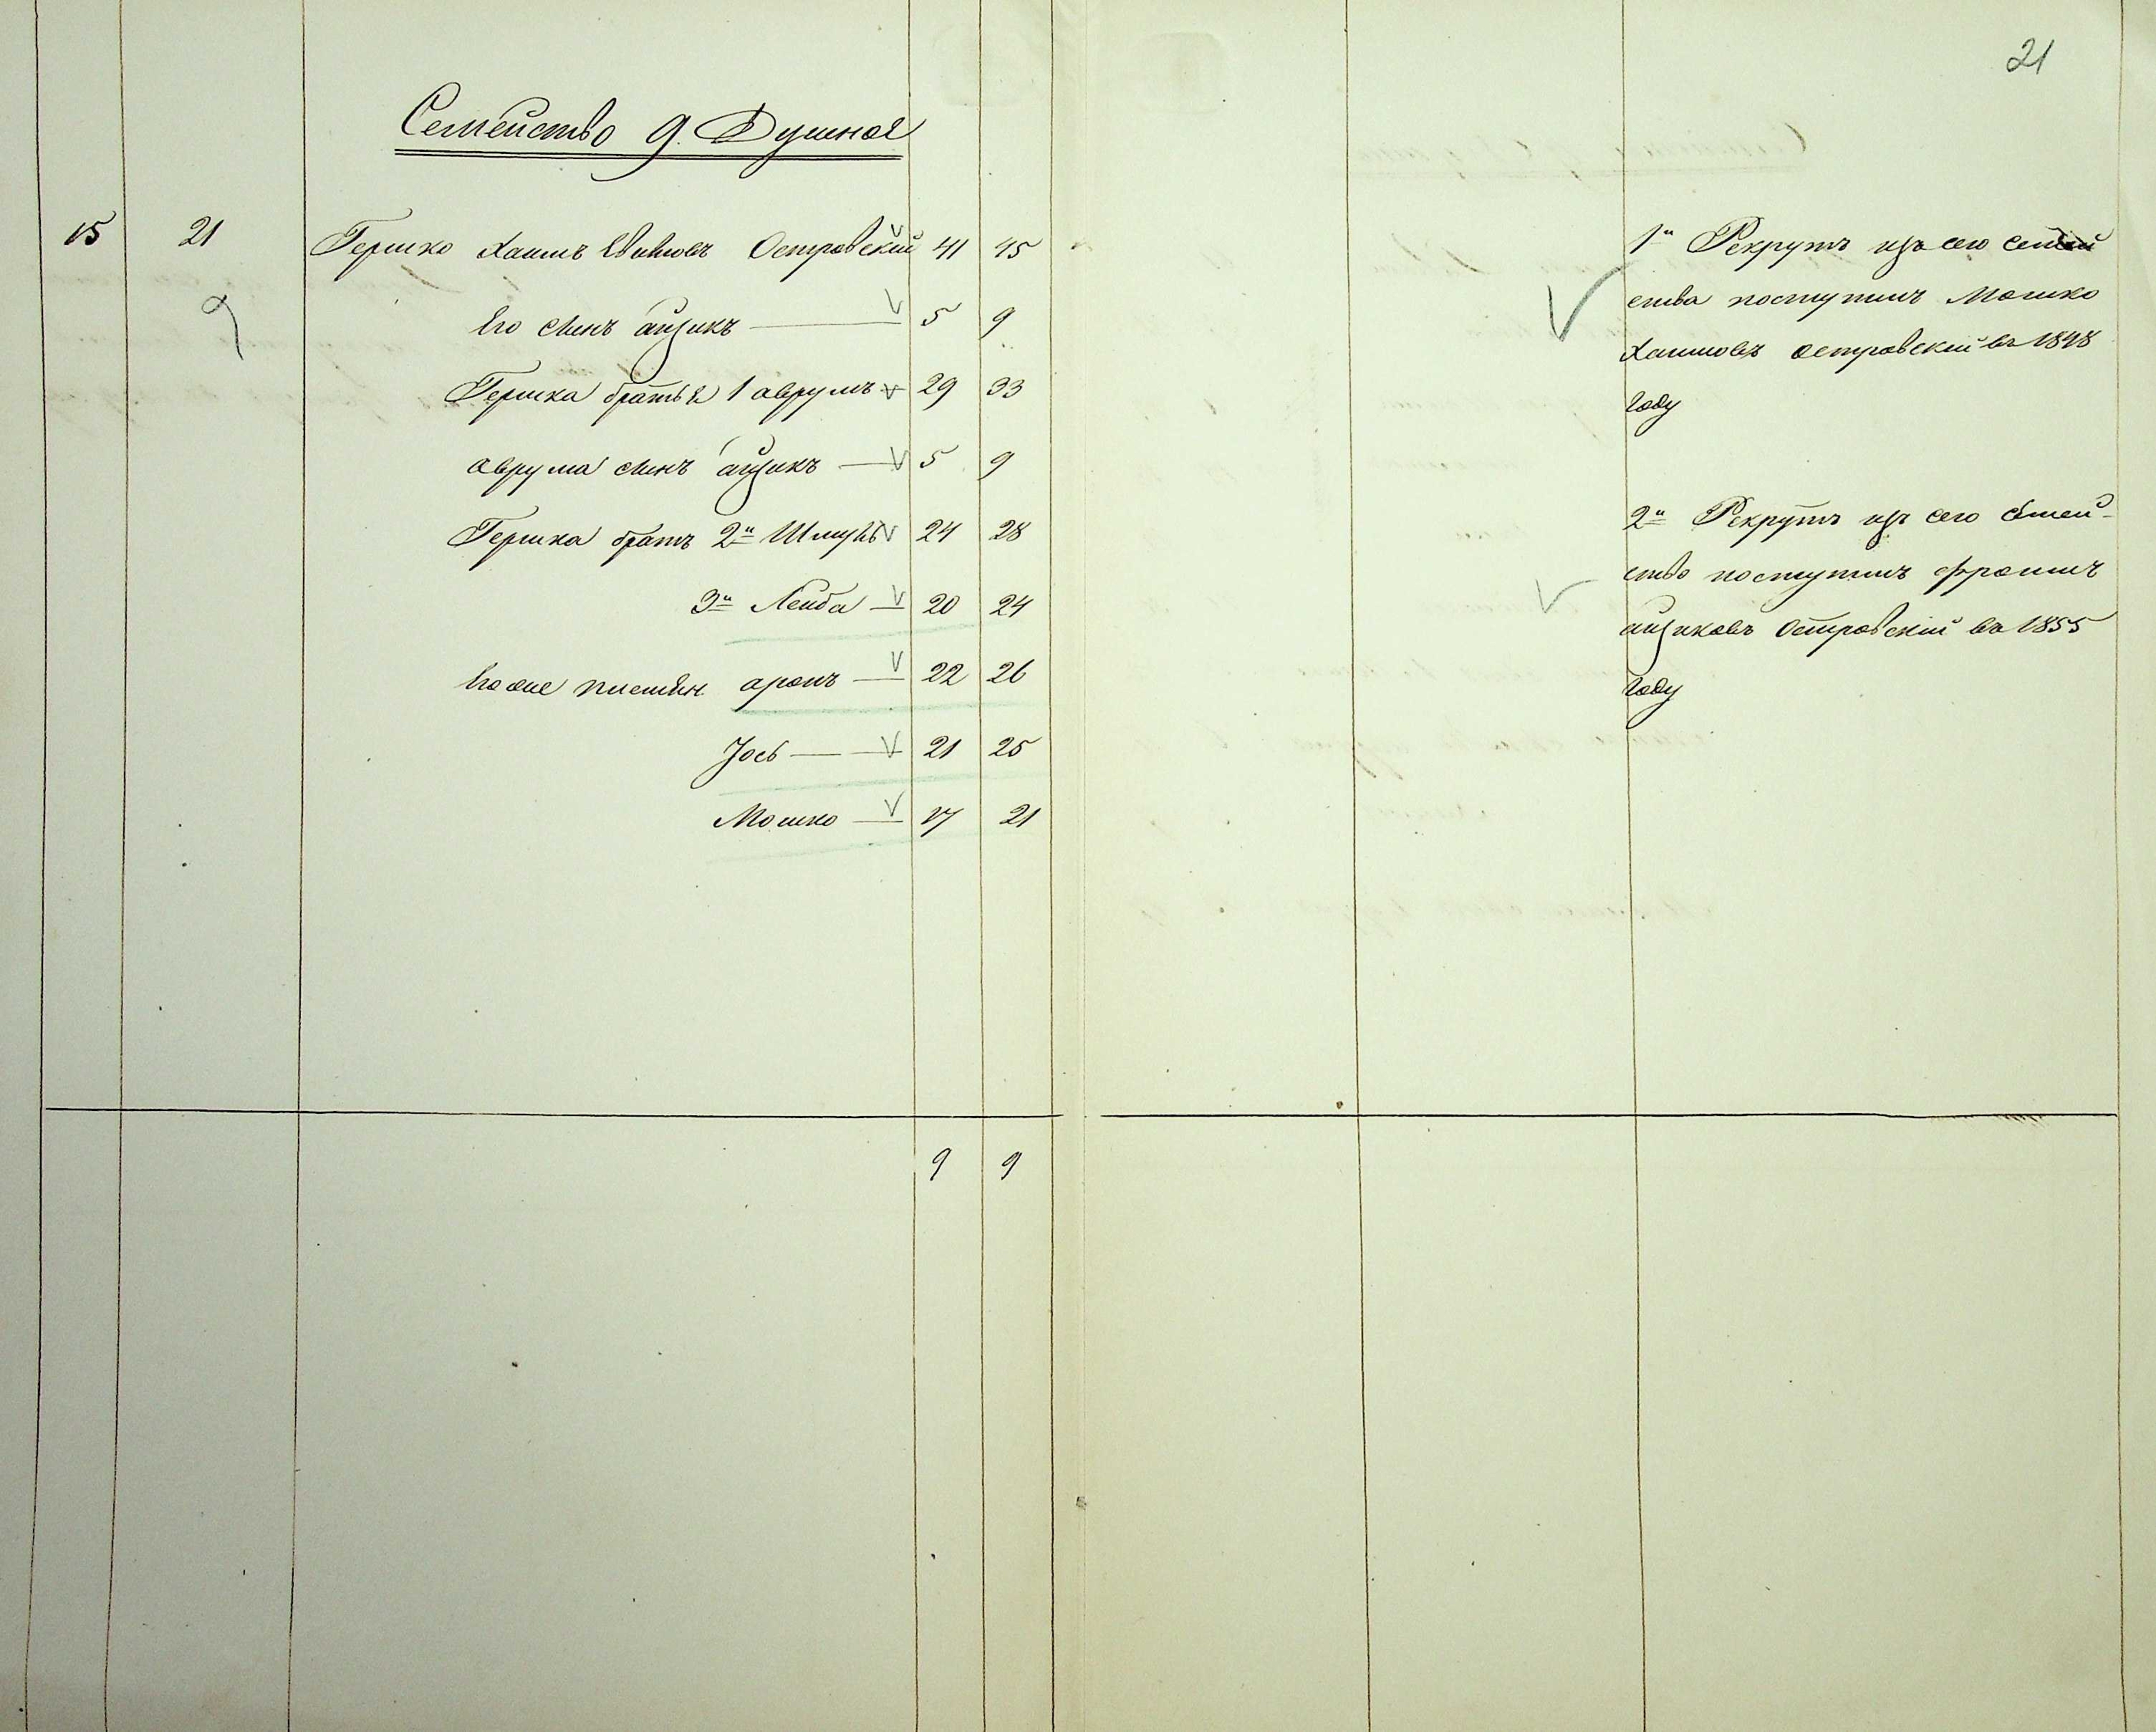 21
Семейство 9. Душное
15 21 Гершко Хаимъ Островскій 41 45
9
Его сынъ айзикъ 5 9
Гершка братья 1 аврумъ 29 33
аврума сынъ айзикъ 5 9
Гершка братъ 2й Шмуль 24 28
3й Лейба 20 24
Его же племян. аронъ 22 26
Іось 21 25
Мошко 17 21
9 9
1й Рекрутъ изъ сего семей
ства поступилъ Мошко
Хаимовъ Островскій въ 1848
Году
2й Рекрутъ изъ сего семей-
ство поступилъ Фроимъ
айзиковъ Островскій въ 1855
Году